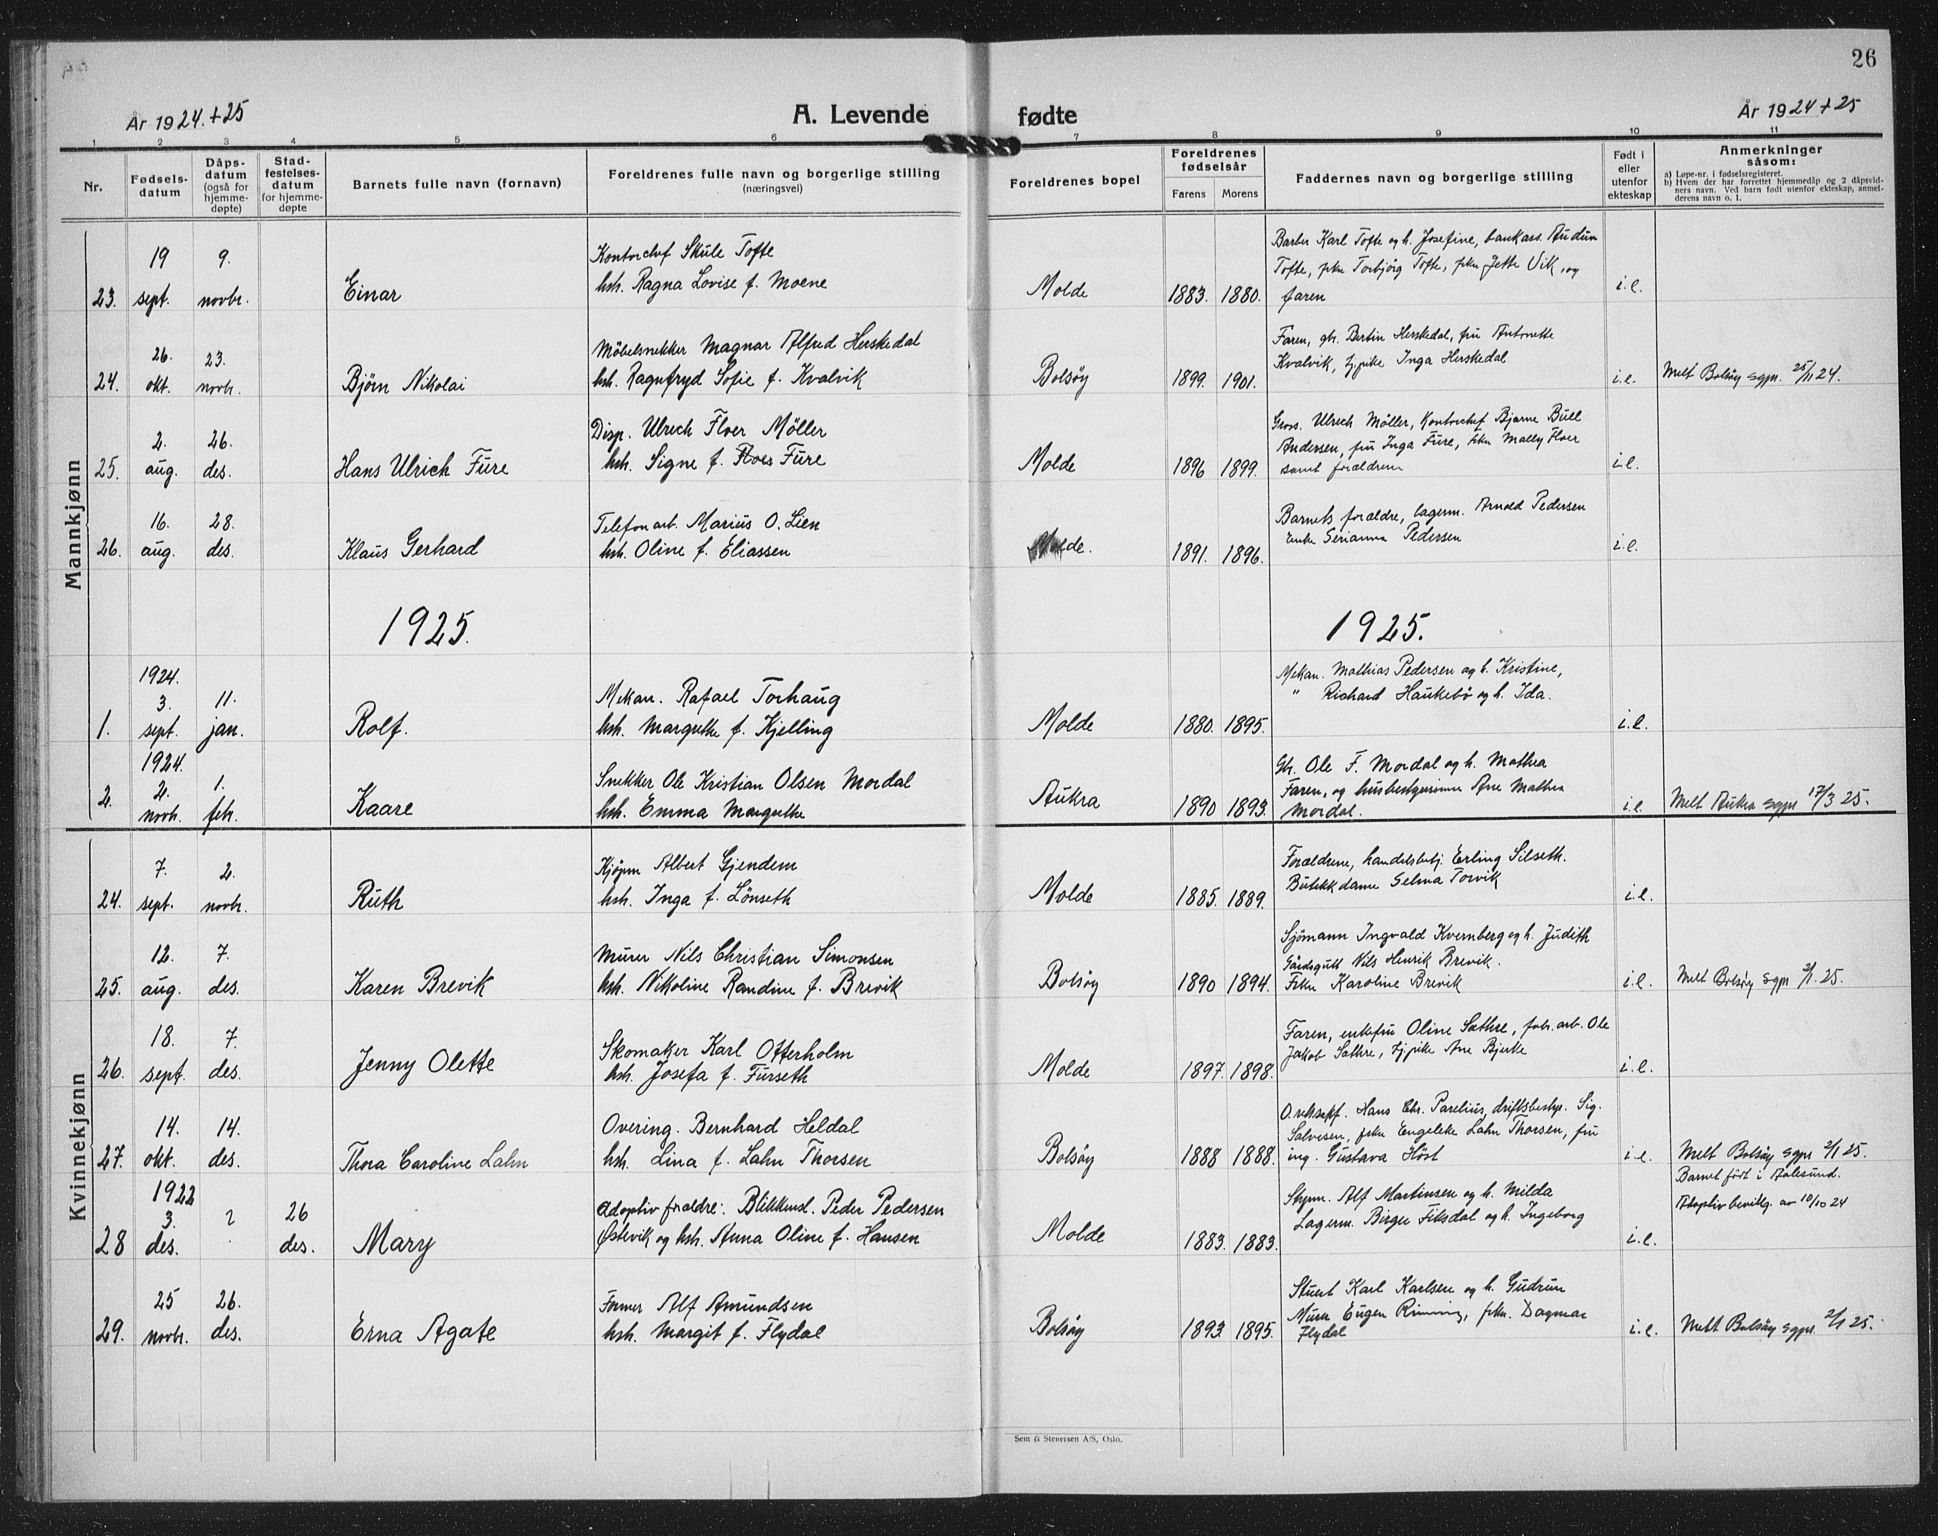 26
År 1924.+25
A. Levende fødte
År 1924+25
1 2 3 4 5 6 7 8 9 10 11
Nr.
Fødsels-
datum
Dåps-
datum
(også for
hjemme-
døpte)
Stad-
festelses-
datum
for hjemme-
døpte
Barnets fulle navn (fornavn)
Foreldrenes fulle navn og borgerlige stilling
(næringsvei)
Foreldrenes bopel
Foreldrenes
fødselsår
Farens Morens
Faddernes navn og borgerlig stilling
Født i
eller
utenfor
ekteskap
Anmerkninger
såsom:
a) Løpe-nr. i fødselsregisteret.
b) Hvem der har forrettet hjemmedåp og 2 dåpsvid-
ners navn. Ved barn født utenfor ekteskap, anmel-
derens navn o. l.
Mannkjønn
23. 19 sept. 9. novbr. Einar
Kontorchef Skule Tofte
hstr. Ragna Lovise f. Moene
Molde 1883. 1880.
Barber Karl Tofte og h. Josefine, bankass. Audun
Tofte, frkn Torbjørg Tofte, frkn Jette Vik, og
faren
i.e.
24. 26. okt. 23. novbr. Bjørn Nikolai
Møbelsnekker Magnar Alfred Herskedal
hstr. Ragnfryd Sofie f. Kvalvik
Bolsøy 1899. 1901.
Faren, gbr. Bertin Herskedal, fru Antonette
Kvalvik, tj.pike Inga Herskedal
i.e. Melt Bolsøy sgpr. 25/11 24.
25. 2. aug. 26. des. Hans Ulrich Fure
Disp. Ulrech Floer Møller
hstr. Signe f. Floer Fure
Molde 1896 1899.
Gross. Ulrech Møller, Kontorchef Bjarne Bull
Andersen, fru Inga Fure, frkn Mally Floer
samt forældrene
i.e.
26. 16. aug. 28. des. Klaus Gerhard
Telefonarb. Marius O. Lien
hstr. Oline f. Eliassen
Molde. 1891. 1896.
Barnets forældre, lagerm. Arnold Pedersen
Enke Serianna Pedersen
i.e.
1925. 1925.
1. 1924. 3. sept. 11. jan. Rolf.
Mekan. Rafael Torhaug
hstr. Margrethe f. Kjelling
Molde 1880. 1895.
Mekan. Mathias Pedersen og h. Kristine,
" Richard Haukebø og h. Ida.
i.e.
2. 1924. 2. novbr. 1. febr. Kaare
Snekker Ole Kristian Olsen Mordal
hstr. Emma Margrethe
Aukra 1890 1893.
Gbr. Ole F. Mordal og h. Mathea
Faren, og husbestyrerinne Ane Mathea
Mordal.
i.e. Melt Aukra sgpr 17/3 25.
Kvinnekjønn
24. 7. sept. 2. novbr. Ruth
Kjøpm Albert Gjendem
hstr. Inga f. Lønseth
Molde 1885. 1889.
Forældrene, handelsbetj. Erling Silseth.
Butikkdame Selma Torvik
i.e.
25. 12. aug. 7. des. Karen Brevik
Murer Nils Christian Simonsen
hstr. Nikoline Randine f. Brevik
Bolsøy 1890 1894.
Sjømann Ingvald Kvernberg og h. Judith
Gårdsgutt Nils Henrik Brevik.
Frkn Karoline Brevik
i.e. Melt Bolsøy sgpr 2/1. 25.
26. 18. sept. 7. des. Jenny Olette
Skomaker Karl Otterholm
hstr. Josefa f. Furseth
Molde 1897. 1898.
Faren, enkefru Oline Sathre, fabr. arb. Ole
Jakob Sathre, tj.pike Ane Bjerke
i.e.
27. 14. okt. 14. des. Thora Caroline Lahn
Overing. Bernhard Heldal
hstr. Lina f. Lahn Thorsen
Bolsøy 1888 1888.
O.rettssakf. Hans Chr. Parelius, driftsbestyr. Sig.
Salvesen, frkn Engeleke Lahn Thorsen, fru
ing. Gustava Höst
i.e. Melt Bolsøy sgpr 2/1 25.
28 1922 3. des. ? 26 des. Mary
Adoptivforældre: Blikkensl. Peder Pedersen
Østevik og hstr. Anna Oline f. Hansen
Molde 1883. 1883.
Styrm. Alf Martinsen og h. Milda
Lagerm. Birger Fiksdal og h. Ingeborg
i.e.
Barnet født i Aalesund.
Adoptivbevilg. av 10/10 24
29. 25 novbr. 26. des. Erna Agate
Former Alf Amundsen
hstr. Margit f. Flydal
Bolsøy 1893. 1895.
Stuert Karl Karlsen og h. Gudrun
Murer Eugen Rimming, frkn. Dagmar
Flydal
i.e. Melt Bolsøy sgpr 2/1 25.
Sem & Stenersen A/S, Oslo.